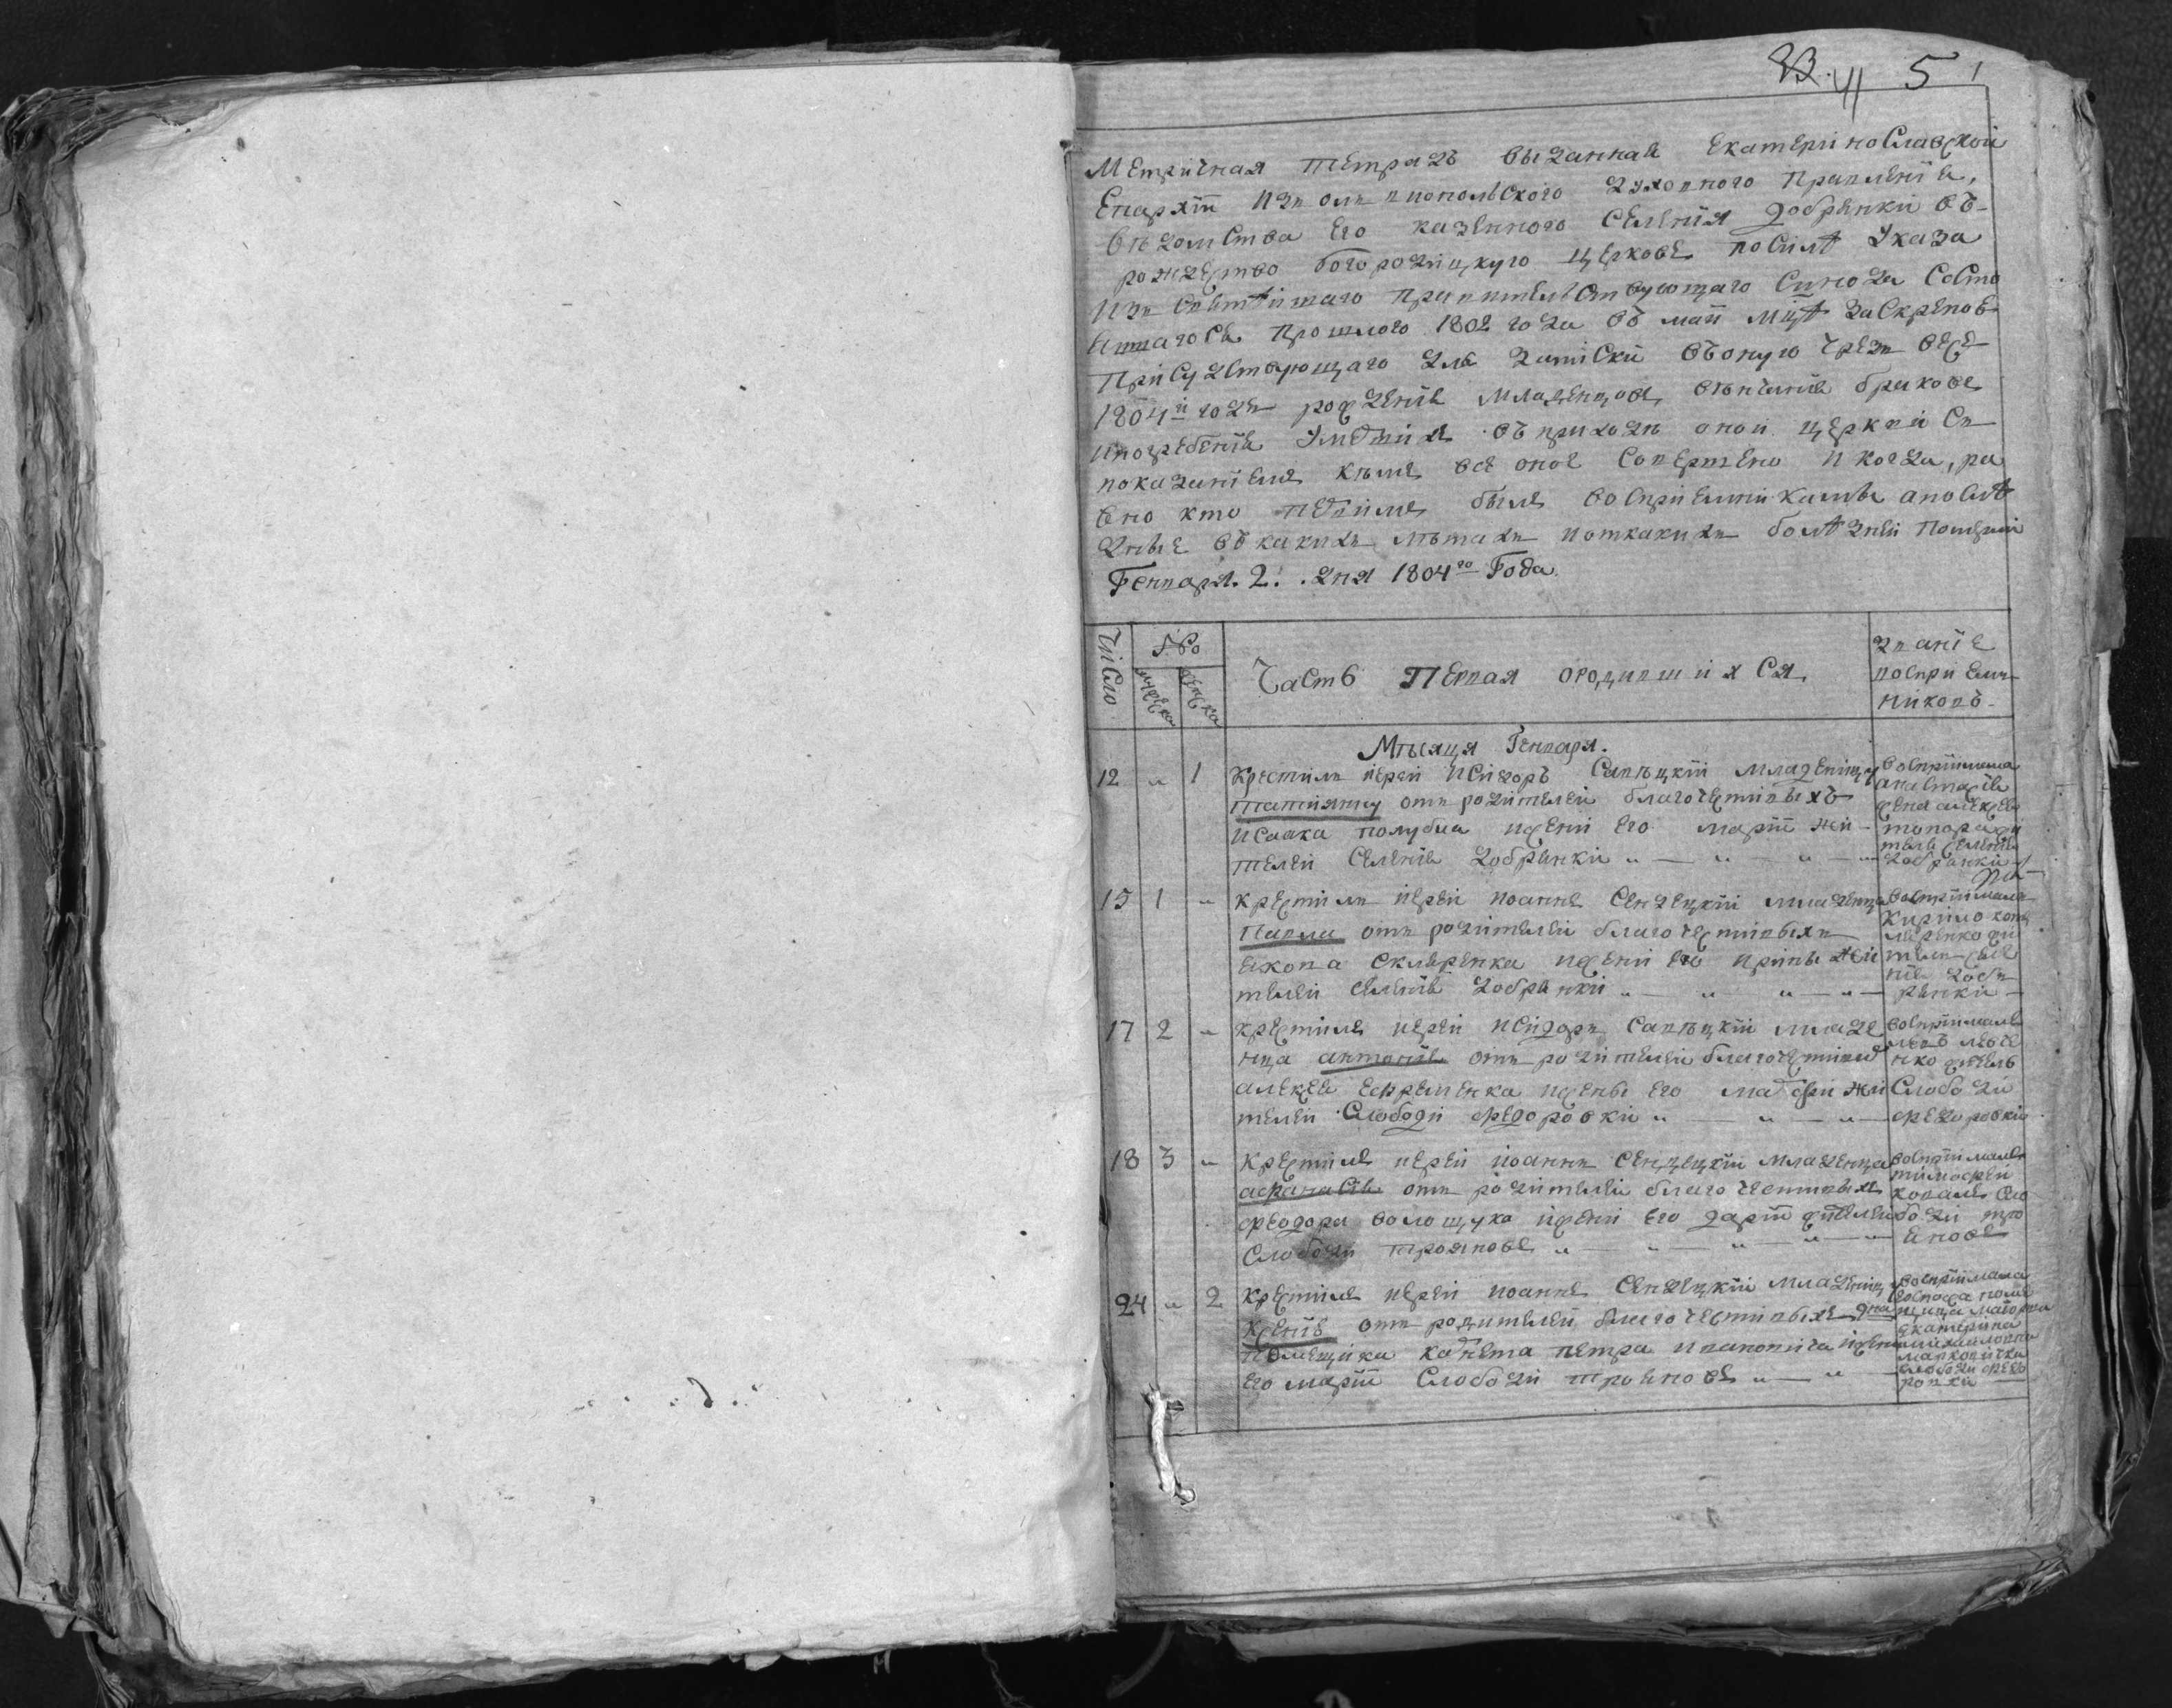 5
Метричная тетрадъ выданная Екатеринославской
Епархiи изъ олвиопольского духовного правленiя,
вѣдомства его казенного селенiя добрянки въ
рождество богородицкую церковь по силѣ указа
изъ святѣйшаго правительствующаго синода состо
явшагося прошлого 1802 года въ маiи мцѣ за скрепою
присудствующаго для записки въоную чрезъ весь
1804й годъ рожденiя младенцовъ, вѣнчанiя браковъ
ипогребенiя умершихъ въприходѣ оной церкви съ
показанiемъ кѣмъ все оное совершено и когда, ра
вно кто первымъ былъ восприемникамы апослѣ
днiе въ какихъ лѣтахъ иоткакихъ болѣзней
Генваря. 2. дня 1804го Года.
Число
№о
мужеска
женска
Часть Первая ородившихся.
званiе
восприем
никовъ
Мѣсяця Генваря.
12 „ 1 Крестилъ иерей Исидоръ Савѣцкiй младеницу
Татиянну отъ родителей благочестивыхъ
Исаака голубца ижени его марiи жи
телей селенiя добрянки
воспрiимала
анастасiя
жена алексея
топора жи
тель селенiя
добрянки
15 1 „ крестилъ иерей иоаннъ Сендецкiй младенца
Павла отъ родителей благочестивыхъ
якова скляренка ижени его ирины жи
телей селенiя добрянки
воспрiималъ
кирило кот
ляренко жи
тель селе
нiя доб
рянки
17 2 „ крестилъ иерей исидоръ савѣцкiй младе
нца антонiя отъ родителей благочестивых
алексея ефременка ижены его мавры жи
телей слободи федоровки
воспрiималъ
левъ левче
нко житель
слободи
федоровки
18 3 „ крестилъ иерей иоаннъ сендецкiй младенца
афанасiя отъ родителей благочестивыхъ
феодора волощука ижени его дарiи жителей
слободи трояновъ
воспрiималъ
тимофей
ковалъ сло
боди тро
яновъ
24 „ 2 крестилъ иерей иоаннъ сендецкiй младениц
ксенiя отъ родителей благочестивыхъ
помещика кадета петра ивановича ижени
его марiи слободи трояновъ
воспрiимала
госпожа поме
щица маiорша
екатерина
михаиловна
марковичка
слободи федо
ровки